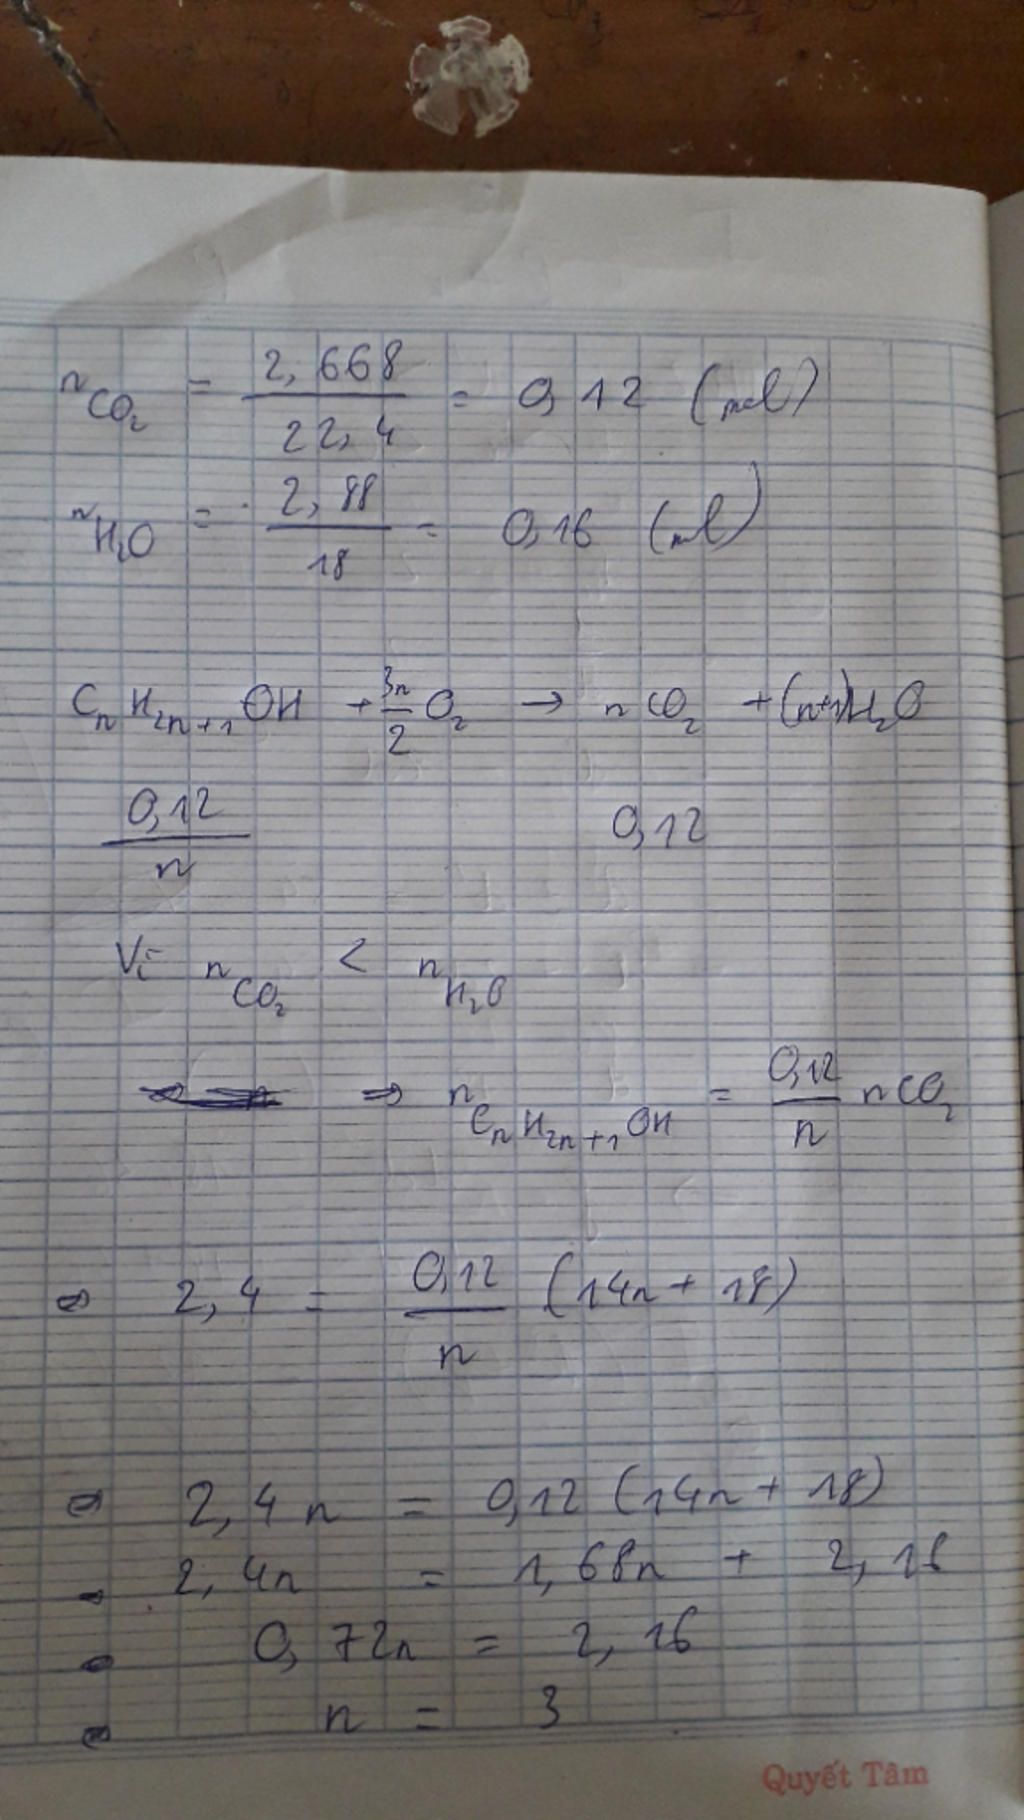 nCO₂ = 2,668 / 22,4 = 0,12 (mol)
nH₂O = 2,88 / 18 = 0,16 (mol)
CₙH₂ₙ₊₁OH + 3n/2 O₂ → nCO₂ + (n+1)H₂O
0,12 / n 0,12
Vì nCO₂ < nH₂O
⇒ nCₙH₂ₙ₊₁OH = 0,12 / n nCO₂
⇔ 2,4 = 0,12 / n (14n + 18)
⇔ 2,4n = 0,12 (14n + 18)
⇔ 2,4n = 1,68n + 2,16
⇔ 0,72n = 2,16
⇔ n = 3
Quyết Tâm